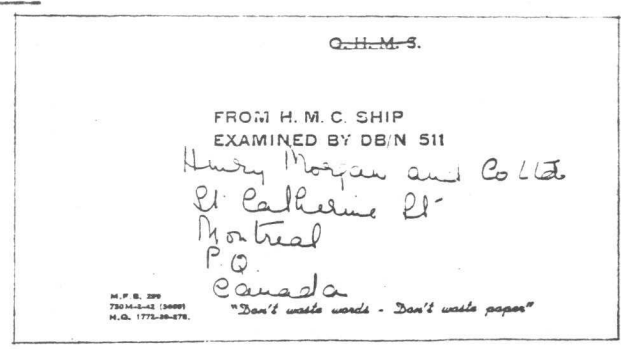 O.H.M.S.
FROM H. M. C. SHIP
EXAMINED BY DB/N 511
Henry Morgan and Co Ltd
St Catherine St
Montreal
P.Q.
Canada
M.F.B. 299
750M-2-42 (3669)
H.Q. 1772-39-278.
"Don't waste words - Don't waste paper"